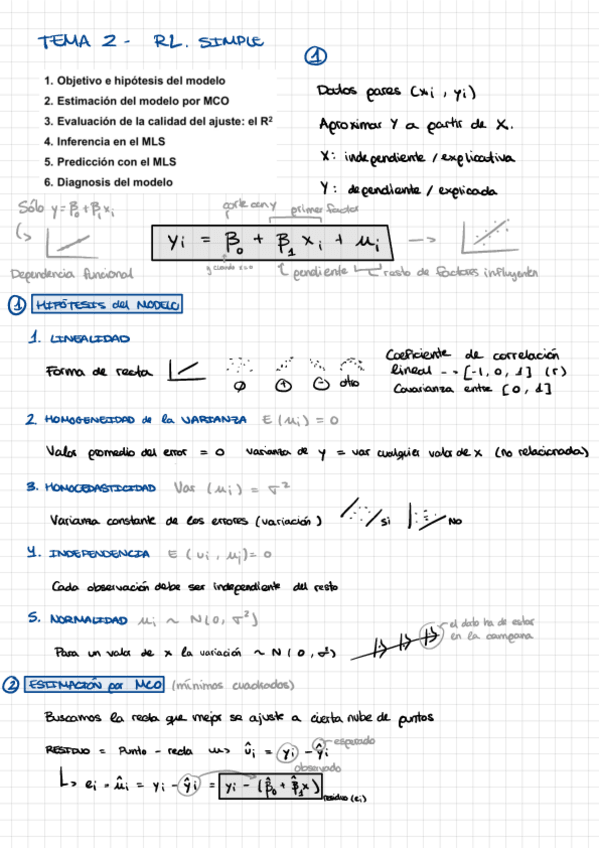 TEMA 2 - RL. SIMPLE
1
1. Objetivo e hipótesis del modelo
2. Estimación del modelo por MCO
3. Evaluación de la calidad del ajuste: el R²
4. Inferencia en el MLS
5. Predicción con el MLS
6. Diagnosis del modelo
Datos pares (xi, yi)
Aproximar Y a partir de X.
X: independiente / explicativa
Y: dependiente / explicada
Sólo y = β₀ + β₁xi
Dependencia funcional
corte con y
primer factor
yi = β₀ + β₁ xi + ui
y cuando x=0
pendiente
resto de factores influyentes
1 HIPÓTESIS del MODELO
1. LINEALIDAD
Forma de recta
∅ + - otro
Coeficiente de correlación
lineal -- [-1, 0, 1] (r)
Covarianza entre [0, 1]
2. HOMOGENEIDAD de la VARIANZA E(ui) = 0
Valor promedio del error = 0 varianza de y = var cualquier valor de x (no relacionada)
3. HOMOCEDASTICIDAD Var (ui) = σ²
Varianza constante de los errores (variación)
Si
No
4. INDEPENDENCIA E (ui, uj) = 0
Cada observación debe ser independiente del resto
5. NORMALIDAD ui ~ N(0, σ²)
Para un valor de x la variación ~ N (0, σ²)
el dato ha de estar
en la campana
2 ESTIMACIÓN por MCO (mínimos cuadrados)
Buscamos la recta que mejor se ajuste a cierta nube de puntos
RESIDUO = Punto - recta → ûi = yi - ŷi
esperado
observado
ei = ûi = yi - ŷi = yi - (β̂₀ + β̂₁x)
residuo (ei)